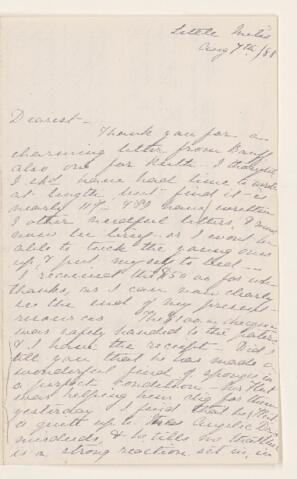 Little Métis
Aug 7th/88
Dearest -
Thank you for a
charming letter from Banff
also one for Ruth - I thought
I shd have had time to write
at length but find it is
nearly 11 P. & I have written
2 other needful letters, & must
now be brief or I wont be
able to tuck the young ones
up & put myself to bed -
I received the $50 00 for wh
thanks, as I can now clearly
see the end of my present
resources The cheque
was safely handed to the
& I have the receipt - Did I
tell you that he was made a
wonderful find of sponges in
a perfect condition - Mr
was helping him dig for them
yesterday I find that he
is quite up to Angelic Dr
misdeeds, & he tells me that there
is a strong reaction set in, in